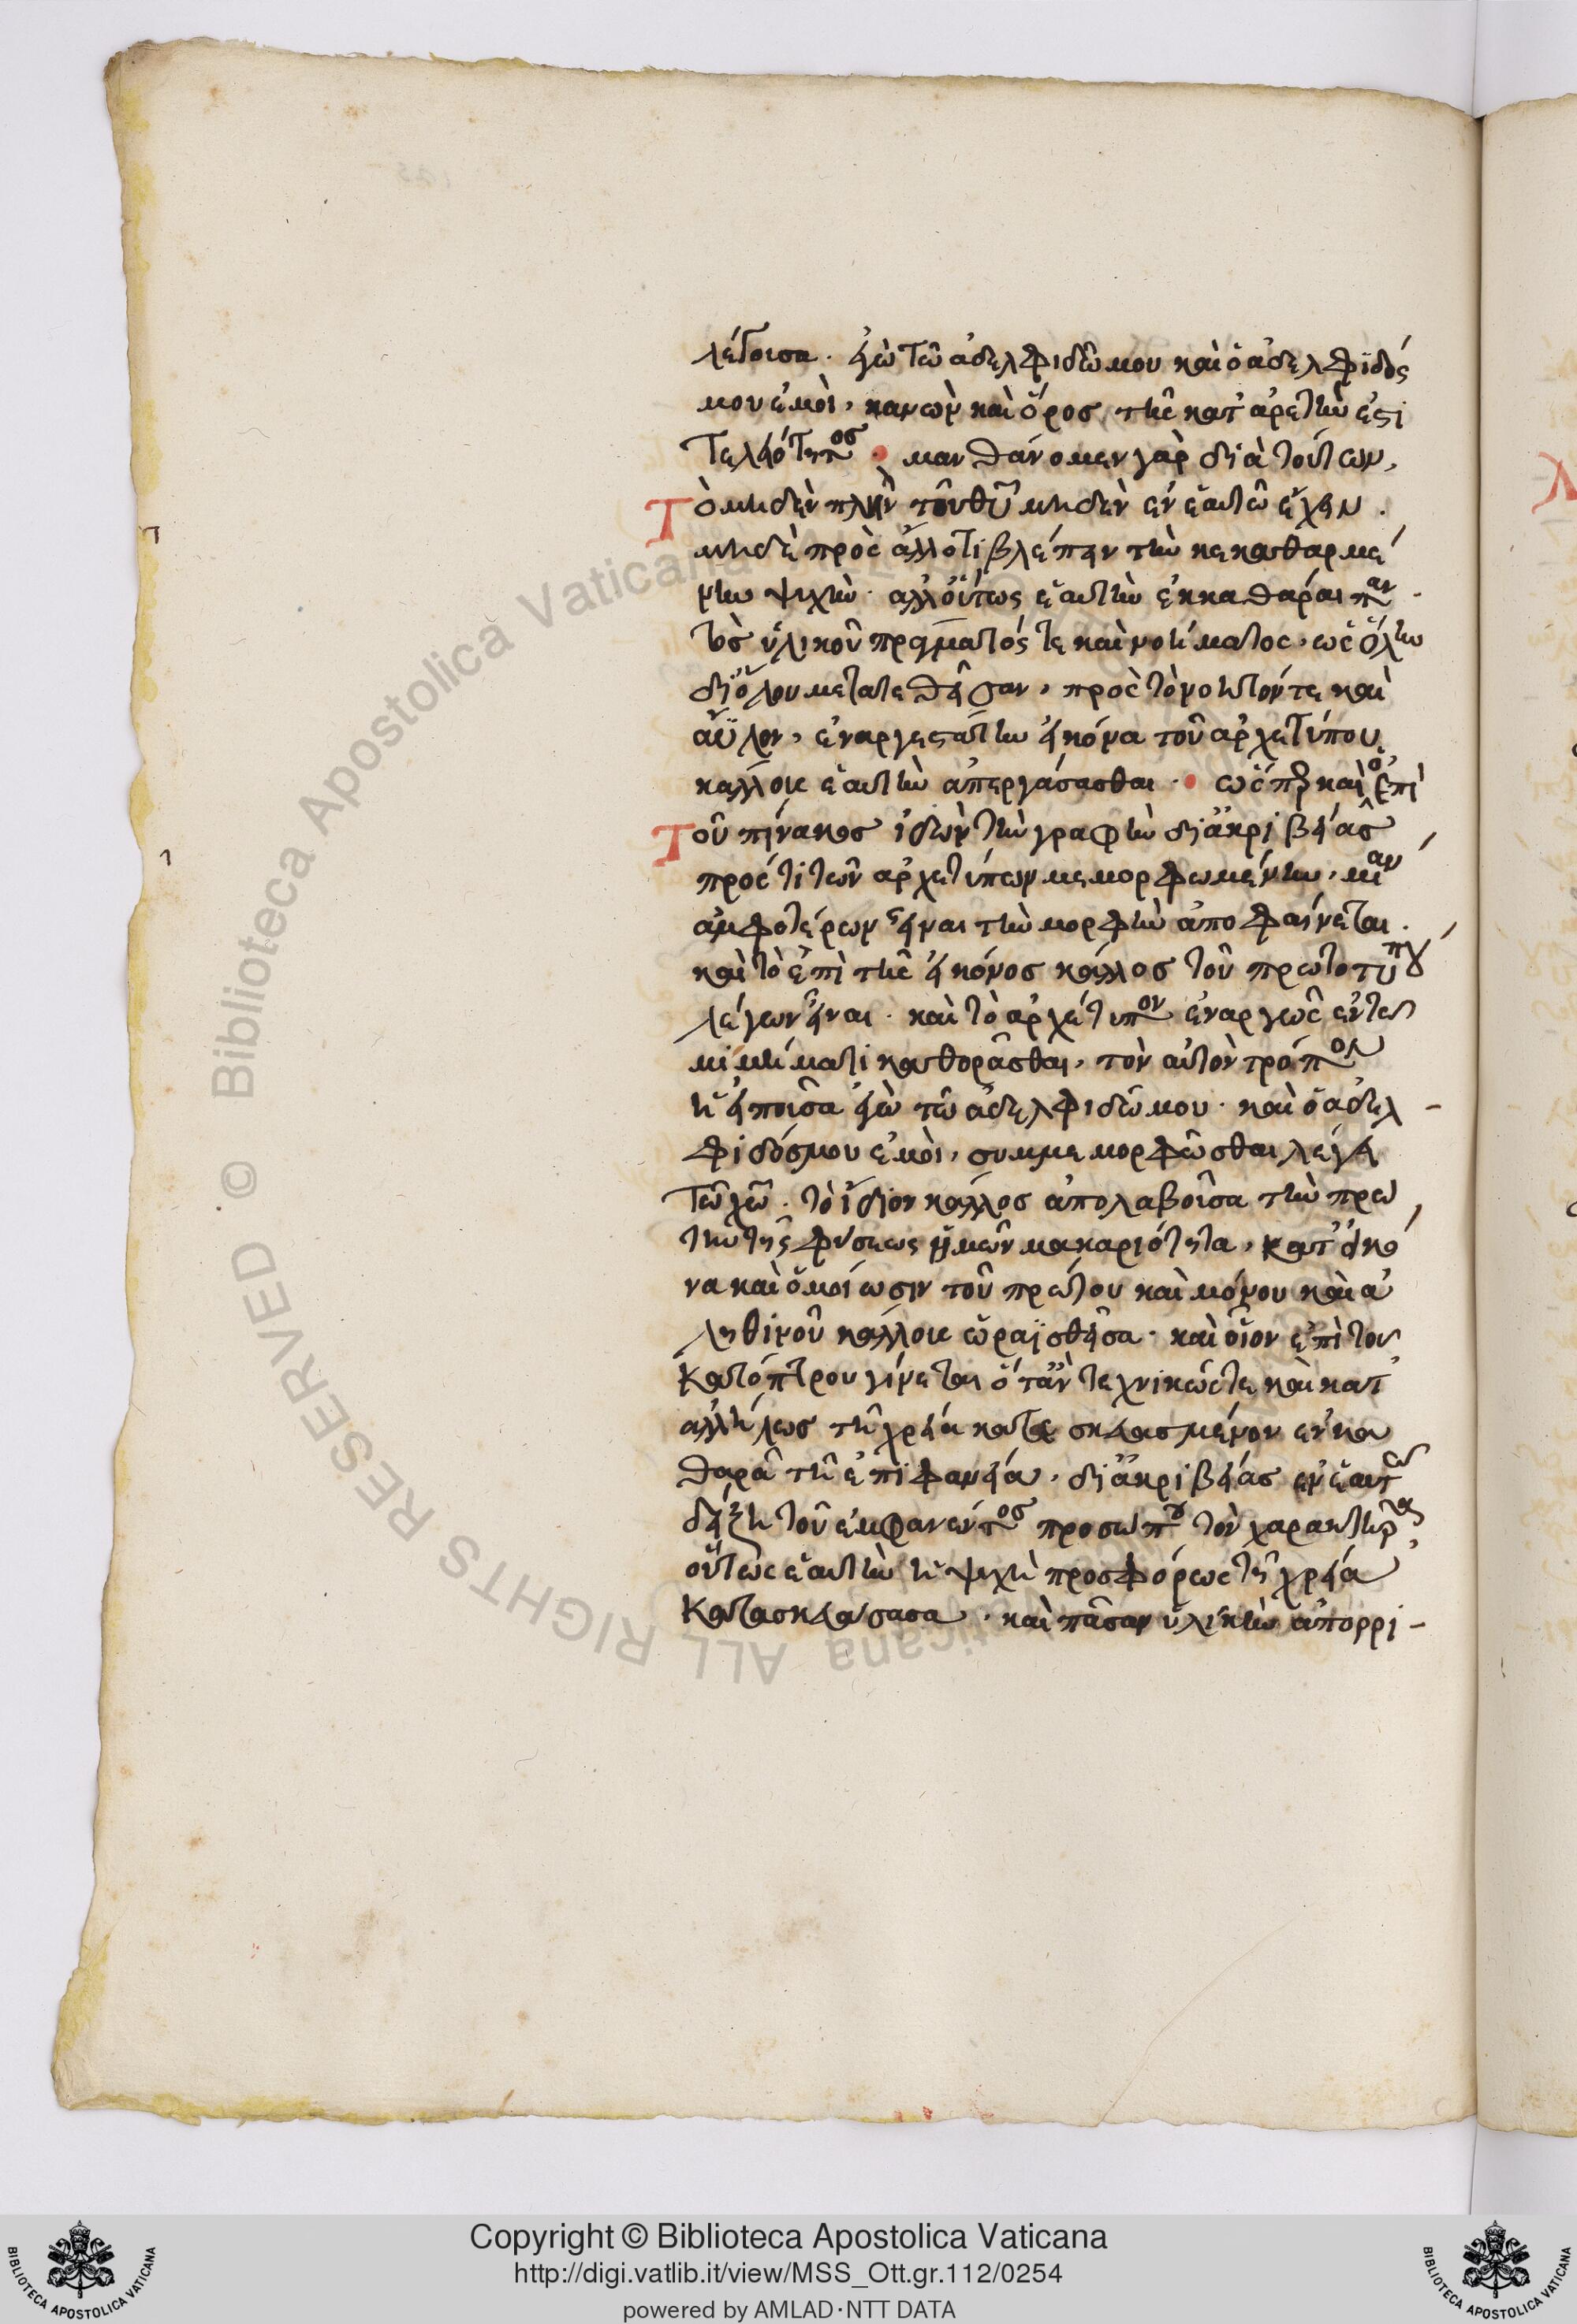 λέγουσα. ἐγὼ τῶ ἀδελφιδῶ μου καὶ ὁ ἀδελφϊδός
μου ἐμοὶ, κανὼν καὶ ὅρος τῆς κατ' ἀρετὴν ἐστι
τελειότητος · μανθάνομεν γὰρ διὰ τούτων,
Τὸ μηδὲν πλὴν τοῦ θυ μηδὲν ἐν ἑαυτῶ ἔχειν.
μηδὲ πρὸς ἄλλό τι βλέπειν τὴν κεκαθαρμέ
νην ψυχὴν. ἀλλ' οὕτως ἑαυτὴν ἐκκαθάραι παν
τὸς ὑλικοῦ πράγματός τε καὶ νοήματος, ὡς ὅλην
δι' ὅλου μετατεθεῖσαν, πρὸς τὸ νοητόν τε καὶ
ἄϋλον, ἐναργεστάτην εἰκόνα τοῦ ἀρχετύπου
κάλλους ἑαυτὴν ἀπεργάσασθαι. · ὥσπερ καὶ ὁ ἐπὶ
Τοῦ πίνακος ἰδὼν τὴν γραφὴν δι' ἀκριβείας
πρός τι τῶν ἀρχετύπων μεμορφωμένην, μίαν
ἀμφοτέρων εἶναι τὴν μορφὴν ἀποφαίνεται.
καὶ τὸ ἐπὶ τῆς εἰκόνος κάλλος τοῦ πρωτοτύπου
λέγων εἶναι. καὶ τὸ ἀρχέτυπον ἐναργῶς ἐν τῶ
μιμήματι καθορᾶσθαι, τὸν αὐτὸν τρόπον
ἡ εἰποῦσα ἐγὼ τῶ ἀδελφιδῶ μου. καὶ ὁ ἀδελ-
φιδός μου ἐμοὶ, συμμεμορφῶσθαι λέγει
τῶ χῶ. τὸ ἴδιον κάλλος ἀπολαβοῦσα τὴν πρώ
την τῆς φύσεως ἡμῶν μακαριότητα, κατ' εἰκό
να καὶ ὁμοίωσιν τοῦ πρώτου καὶ μόνου καὶ ἀ
ληθινοῦ κάλλους ὡραϊσθεῖσα. καὶ οἷον ἐπὶ τοῦ
κατόπτρου γίνεται ὅτ' ἂν τεχνικῶς τε καὶ κατ'
ἀλλήλως τῆ χρεία κατεσκευασμένον ἐν κα
θαρᾶ τῆ ἐπιφανεία, δι' ἀκριβείας ἐν ἑαυτῶ
δείξη τοῦ ἐμφανέντος προσώπου τὸν χαρακτῆρα,
οὕτως ἑαυτὴν ἡ ψυχὴ προσφόρως τῆ χρεία
κατασκευάσασα, καὶ πᾶσαν ὑλικὴν ἀπορρι-
Copyright © Biblioteca Apostolica Vaticana
http://digi.vatlib.it/view/MSS_Ott.gr.112/0254
powered by AMLAD·NTT DATA
BIBLIOTECA APOSTOLICA VATICANA
BIBLIOTECA APOSTOLICA VATICANA